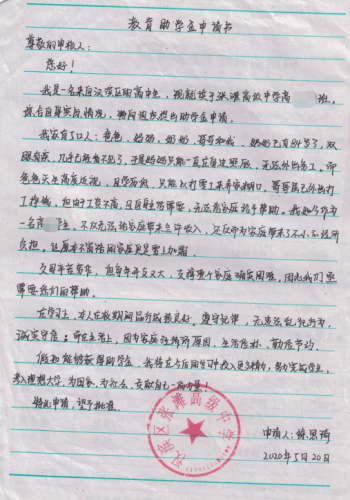 教育助学金申请书
尊敬的审核人：
您好！
我是一名来自汉滨区的高中生，现就读于张滩高级中学高 班，
结合自身实际情况，特向祖国提出助学金申请。
我家有5口人：爸爸，妈妈，奶奶，哥哥和我，奶奶已有84岁了，双
眼 ，几乎已经看不见了，于是妈妈只能一直在身边照顾，无法外出务工。而
爸爸天生高度近视，且学历低，只能以打零工来养家糊口。哥哥虽已外出打
工挣钱，但由于工资不高，且自身生活需要，无法给家庭给予帮助。我如今作为
一名高 学生，不仅无法给家庭带来 收入，还反而为家庭带来了不小的经济
负担。让原本不富裕的家庭更是雪上加霜。
父母辛苦劳作，但每年开支又大，支撑整个家庭确实困难，因此我们
需要 们的帮助。
在学习上，本人在校期间品行成绩良好。遵守纪律，无违法乱纪行为，
诚实守信；而在生活上，因为家庭经济原因，生活俭朴、勤俭节约。
假如能够获得助学金，我将在今后的学习中投入更多精力，努力完成学业，
考入理想大学，为国家，为社会，贡献自己一份力量！
特此申请，望予批准。
申请人：
2020年5月20日
汉滨区张滩高级中学